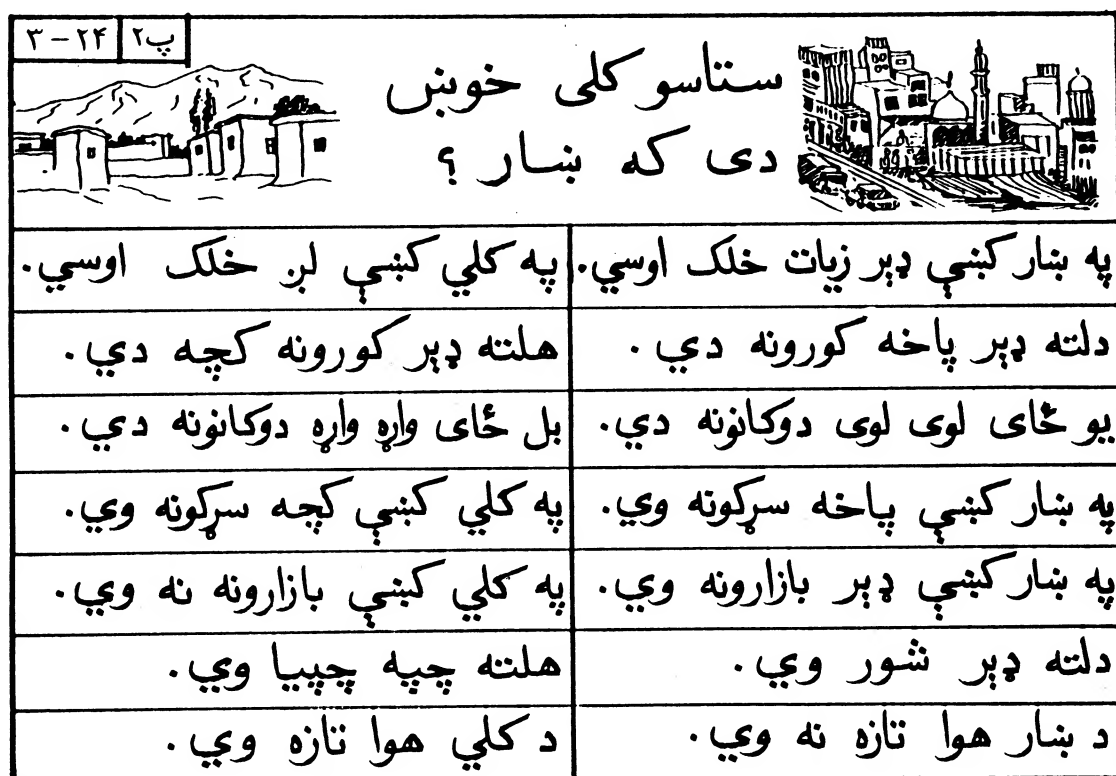 پ۲ ۲۴-۳
ستاسو کلی خوښ
دی که ښار ؟
په ښار کښې ډېر زیات خلک اوسي.
په کلي کښې لږ خلک اوسي.
دلته ډېر پاخه کورونه دي.
هلته ډېر کورونه کچه دي.
یو ځای لوی لوی دوکانونه دي.
بل ځای واړه واړه دوکانونه دي.
په ښار کښې پاخه سړکونه وي.
په کلي کښې کچه سړکونه وي.
په ښار کښې ډېر بازارونه وي.
په کلي کښې بازارونه نه وي.
دلته ډېر شور وي.
هلته چپه چپیا وي.
د ښار هوا تازه نه وي.
د کلي هوا تازه وي.